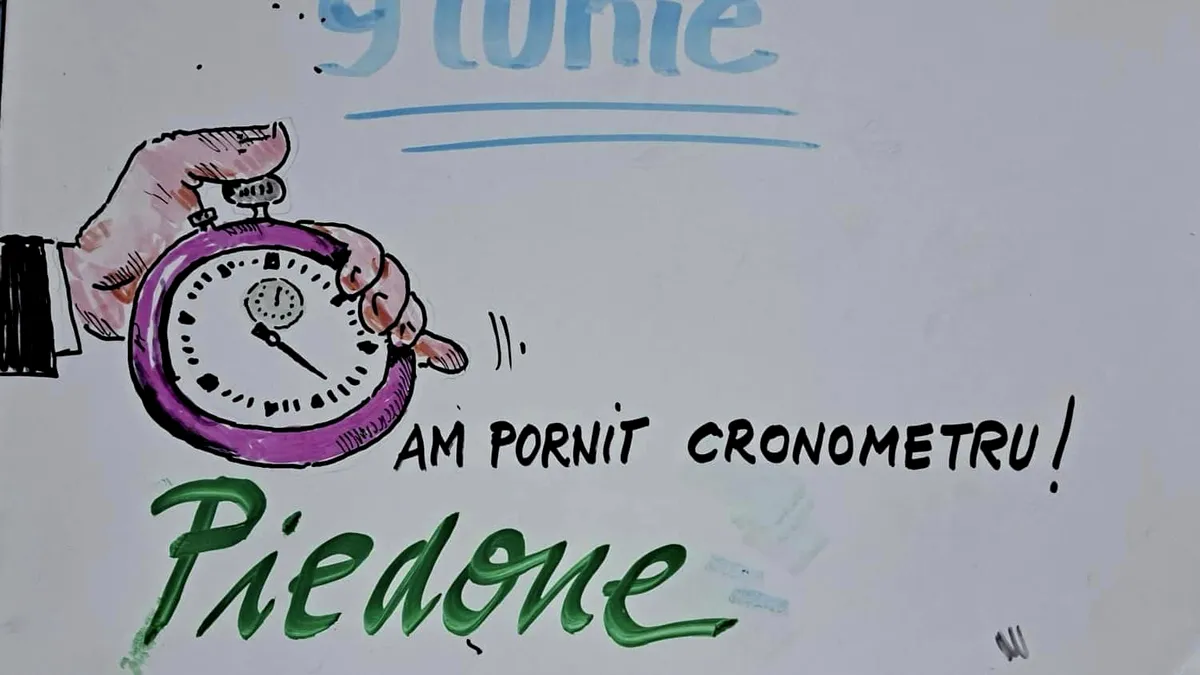 9 IUNIE
AM PORNIT CRONOMETRU!
Piedone